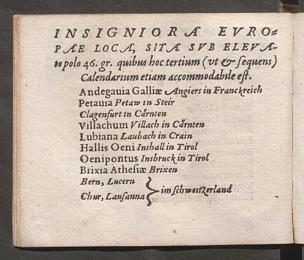 INSIGNIORA EVRO-
PÆ LOCA, SITA SVB ELEVA-
to polo 46. gr. quibus hoc tertium (vt & sequens)
Calendarium etiam accommodabile est.
Andegauia Galliæ Angiers in Franckreich
Petauia Petaw in Steir
Clagenfurt in Cärnten
Villachum Villach in Cärnten
Lubiana Laubach in Crain
Hallis Oeni Inshall in Tirol
Oenipontus Insbruck in Tirol
Brixia Athesiæ Brixen
Bern, Lucern
Chur, Lausanna } im schweitzerland